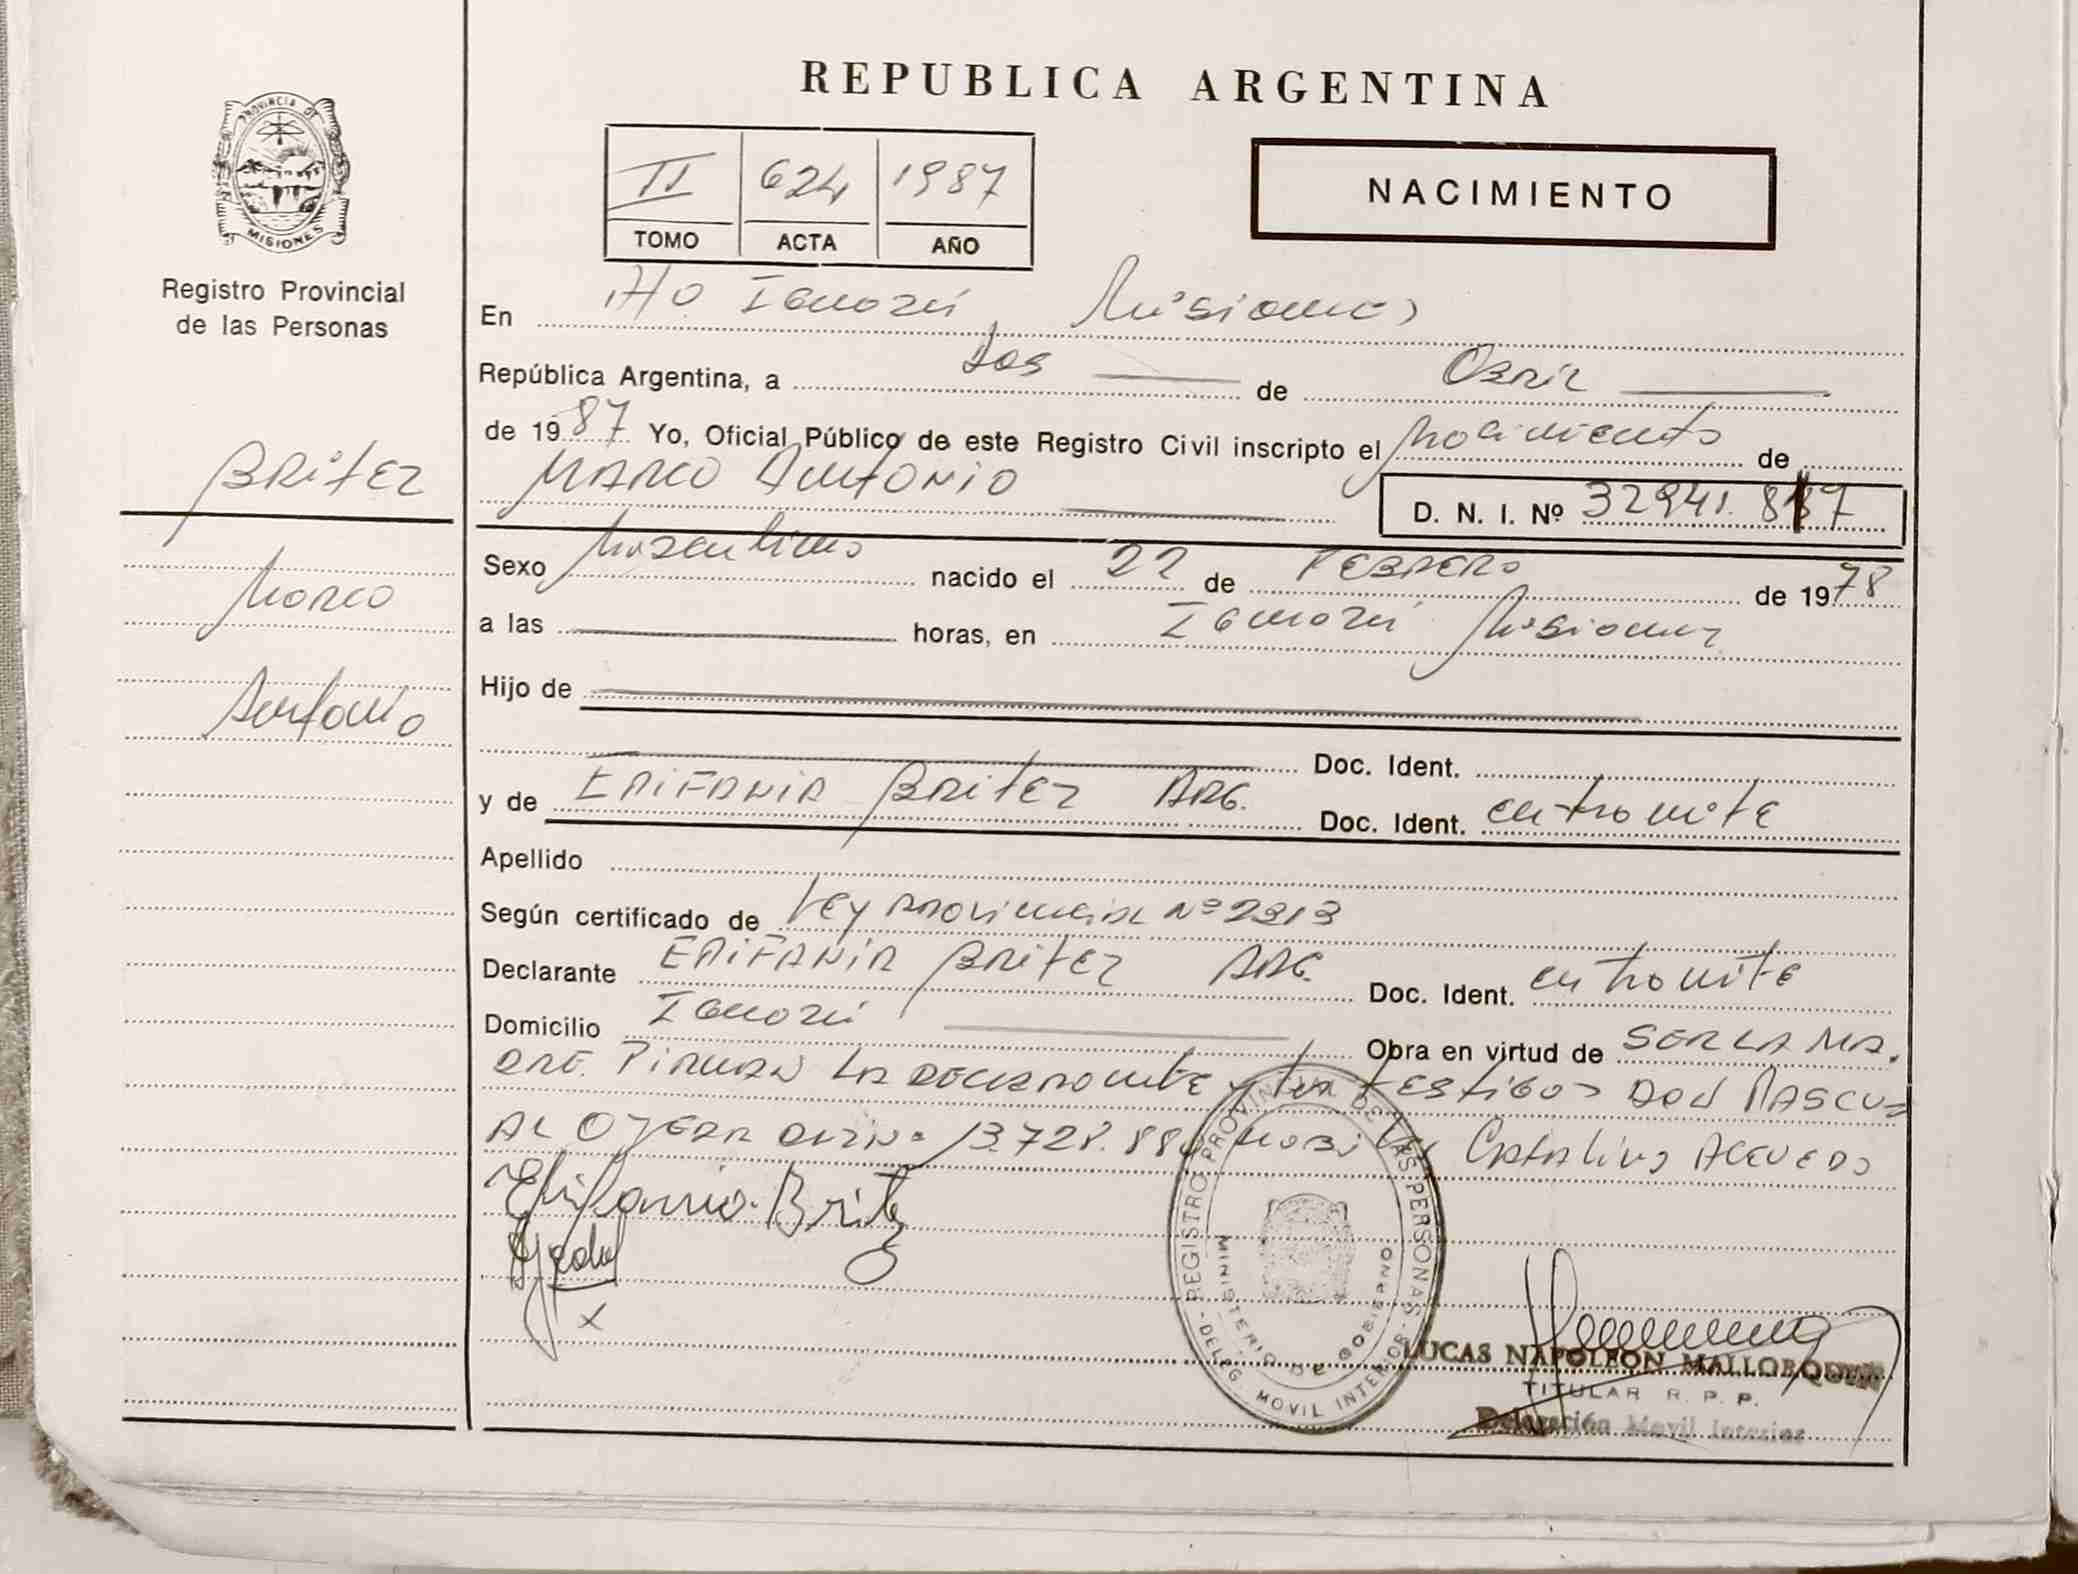 REPUBLICA ARGENTINA
PROVINCIA DE
MISIONES
Registro Provincial
de las Personas
II 624 1987
TOMO ACTA AÑO
NACIMIENTO
En Pto Iguazú, Misiones
República Argentina, a dos de Abril
de 1987 Yo, Oficial Público de este Registro Civil inscripto el Nacimiento de
MARCO ANTONIO
D. N. I. Nº 32941.817
Britez
Marco
Antonio
Sexo Masculino nacido el 22 de FEBRERO de 1978
a las horas, en Iguazú Misiones
Hijo de
Doc. Ident.
y de EPIFANIA Britez ARG. Doc. Ident. en tramite
Apellido
Según certificado de Ley provincial Nº 2313
Declarante EPIFANIA Britez ARG. Doc. Ident. en tramite
Domicilio Iguazú Obra en virtud de SER LA MA.
DRE. FIRMAN LA DECLARANTE y los testigos DON PASCU
AL OJEDA DNI Nº 13.728.88 Catalino ACEVEDO
Epifania Britez
Ojeda
x
REGISTRO PROVINCIAL DE LAS PERSONAS
MINISTERIO DE GOBIERNO
DELEG. MOVIL INTERIOR
LUCAS NAPOLEON MALLORQUIN
TITULAR R. P. P.
Delegación Movil Interior